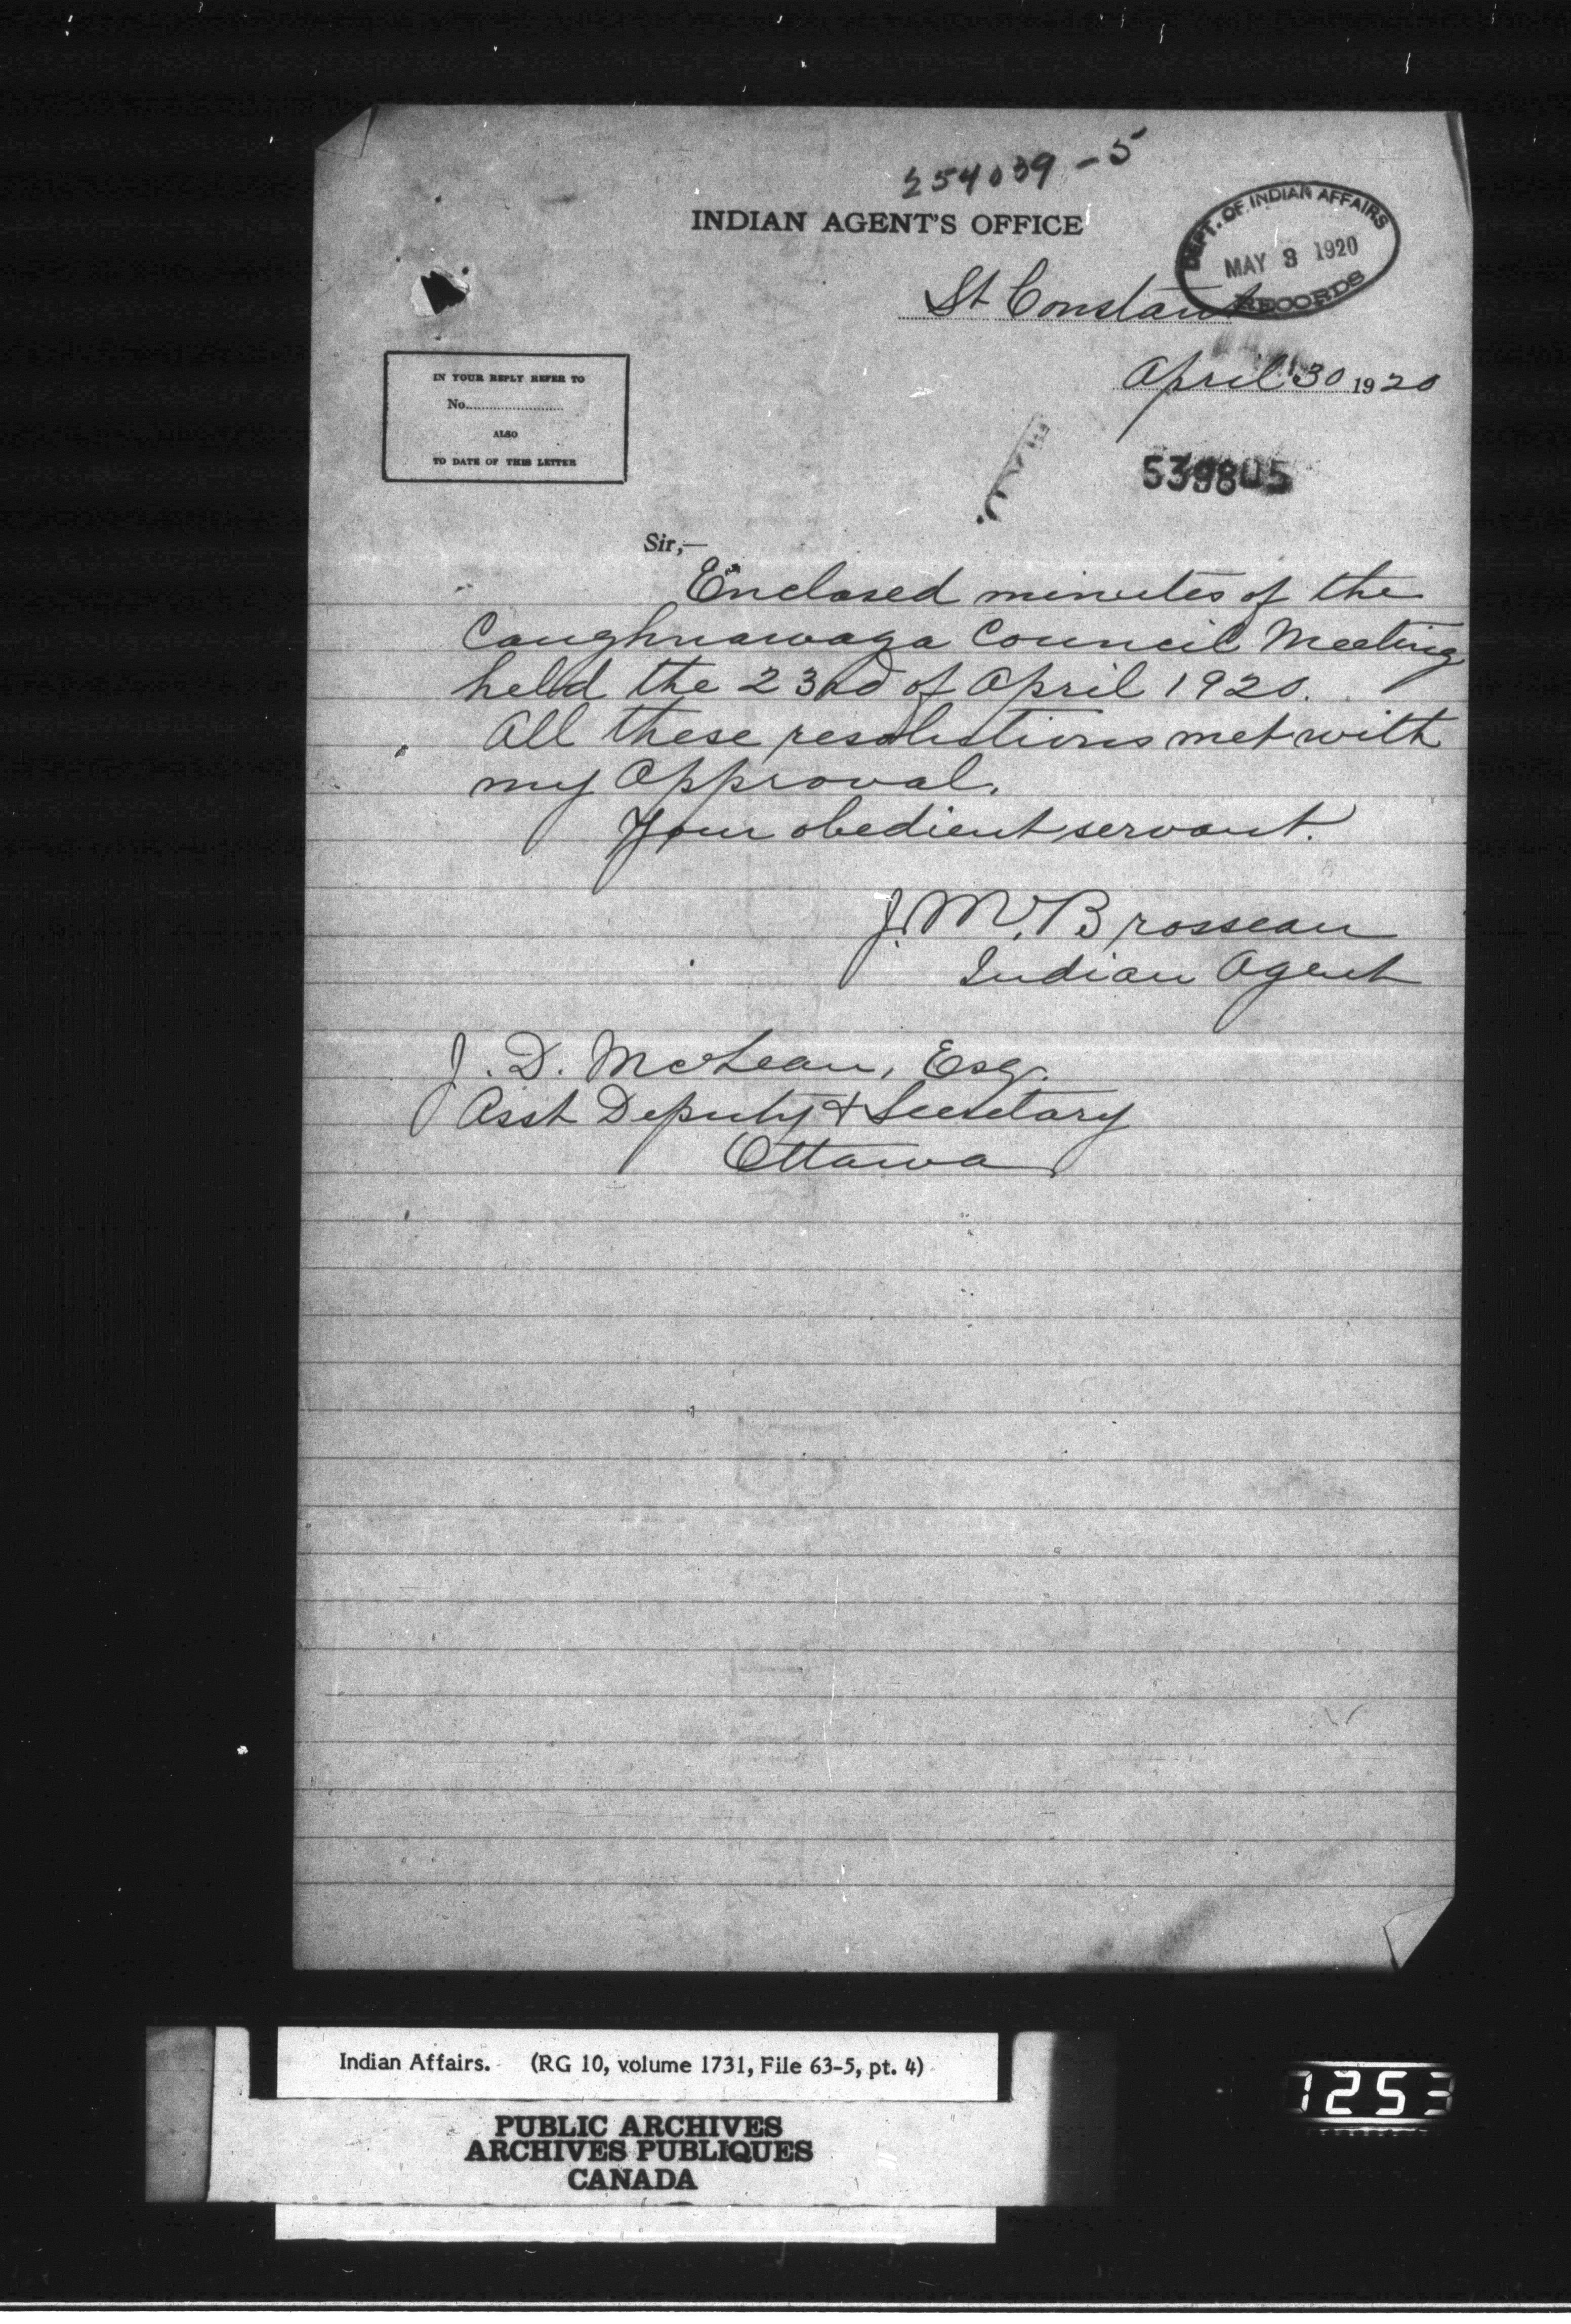 254039-5
INDIAN AGENT'S OFFICE
DEPT. OF INDIAN AFFAIRS
MAY 3 1920
RECORDS
St Constant
April 30 1920
IN YOUR REPLY REFER TO
No.
ALSO
TO DATE OF THIS LETTER
539805
Sir,—
Enclosed minutes of the
Caughnawaga Council Meeting
held the 23rd of April 1920.
All these resolutions met with
my approval.
Your obedient servant.
J. M. Brosseau
Indian Agent
J. D. McLean, Esq.
Asst Deputy & Secretary
Ottawa
Indian Affairs. (RG 10, volume 1731, File 63-5, pt. 4)
PUBLIC ARCHIVES
ARCHIVES PUBLIQUES
CANADA
1253